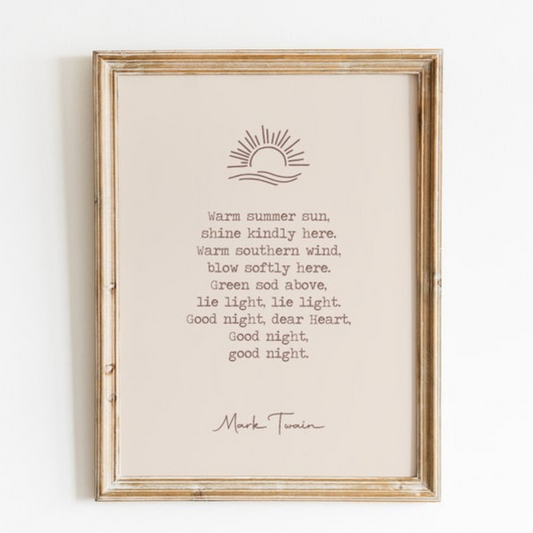 Warm summer sun,
shine kindly here.
Warm southern wind,
blow softly here.
Green sod above,
lie light, lie light.
Good night, dear Heart,
Good night,
good night.
Mark Twain